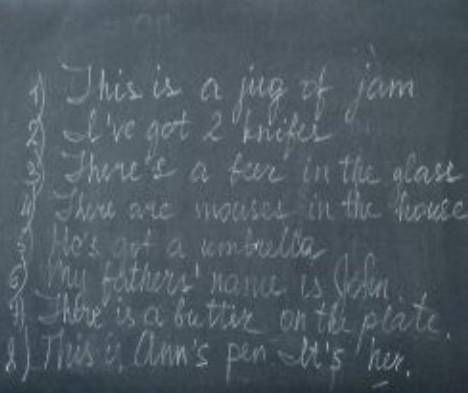 1) This is a jug of jam
2) I've got 2 knifes
3) There's a beer in the glass
4) There are mouses in the house
5) He's got a umbrella
6) My fathers' name is John.
7) There is a butter on the plate.
8) This is Ann's pen It's her.